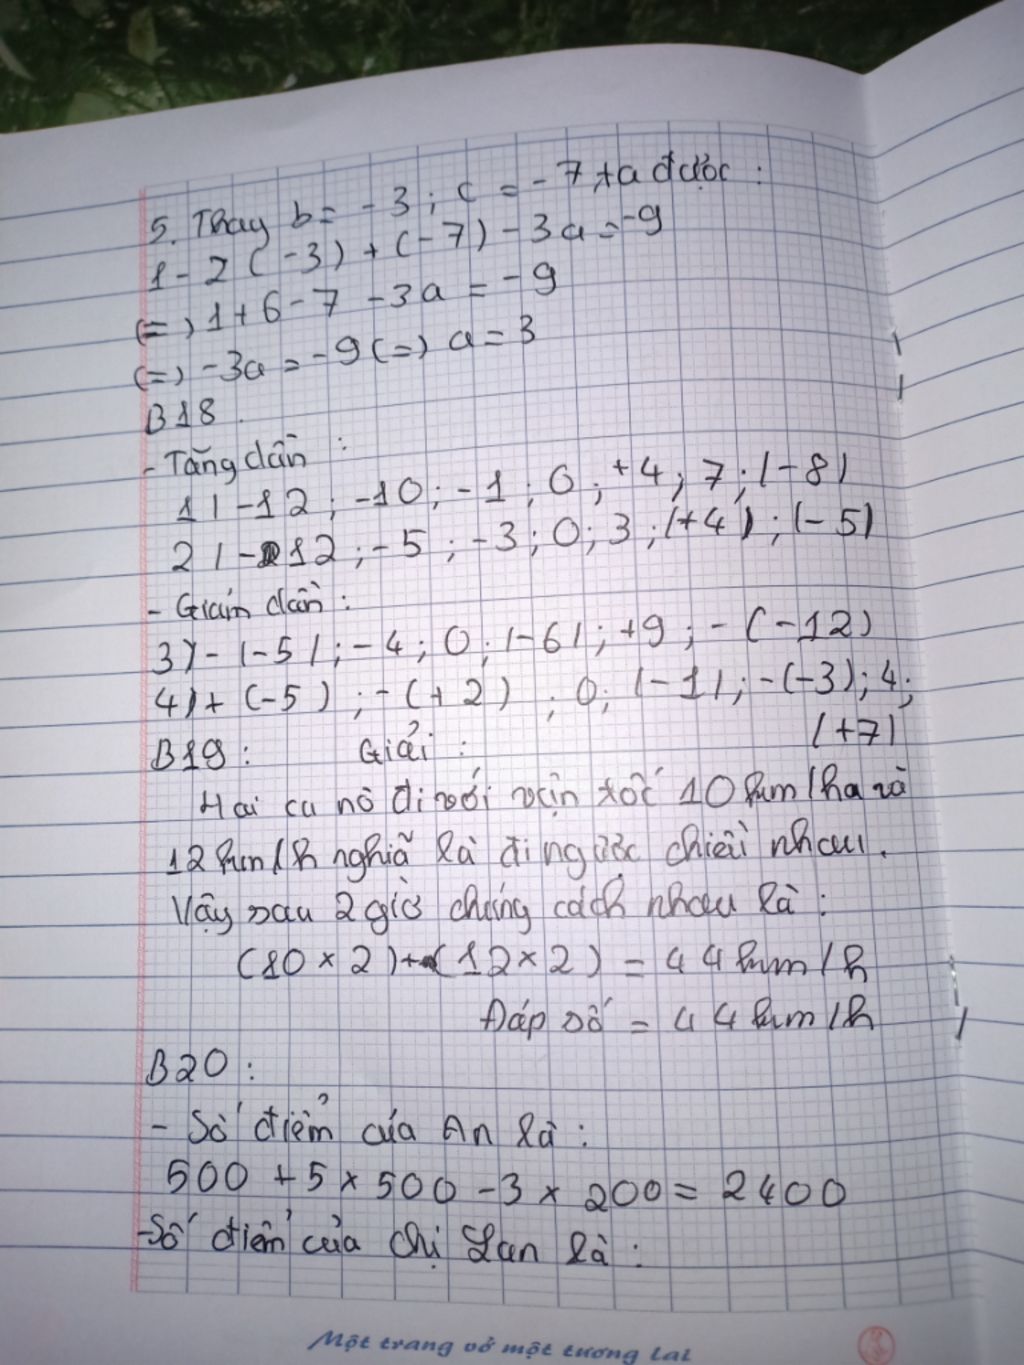 5. Thay b = -3 ; c = -7 ta được :
1 - 2 (-3) + (-7) - 3a = -9
(=) 1 + 6 - 7 - 3a = -9
(=) -3a = -9 (=) a = 3
B18.
- Tăng dần :
1) -12 ; -10 ; -1 ; 0 ; +4 ; 7 ; |-8|
2) -12 ; -5 ; -3 ; 0 ; 3 ; |+4| ; |-5|
- Giảm dần :
3) - |-5| ; -4 ; 0 ; |-6| ; +9 ; - (-12)
4) + (-5) ; - (+2) ; 0 ; |-1| ; -(-3) ; 4 ;
|+7|
B19 : Giải :
Hai ca nô đi với vận tốc 10km/h và
12km/h nghĩa là đi ngược chiều nhau.
Vậy sau 2 giờ chúng cách nhau là :
(10 × 2) + (12 × 2) = 44km/h
Đáp số = 44km/h
B20 :
- Số điểm của An là :
500 + 5 × 500 - 3 × 200 = 2400
- Số điểm của chị Lan là :
Một trang vở một tương lai